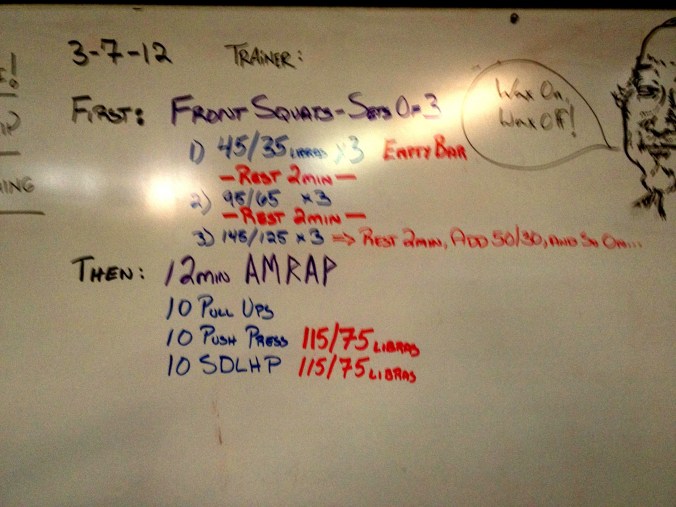 3-7-12 TRAINER:
FIRST: FRONT SQUATS - SETS OF 3
1) 45/35 LIBRAS x3 EMPTY BAR
- REST 2MIN -
2) 95/65 x3
- REST 2MIN -
3) 145/125 x3 => REST 2MIN, ADD 50/30, AND SO ON...
THEN: 12MIN AMRAP
10 PULL UPS
10 PUSH PRESS 115/75 LIBRAS
10 SDLHP 115/75 LIBRAS
Wax On,
Wax Off!
!
ING